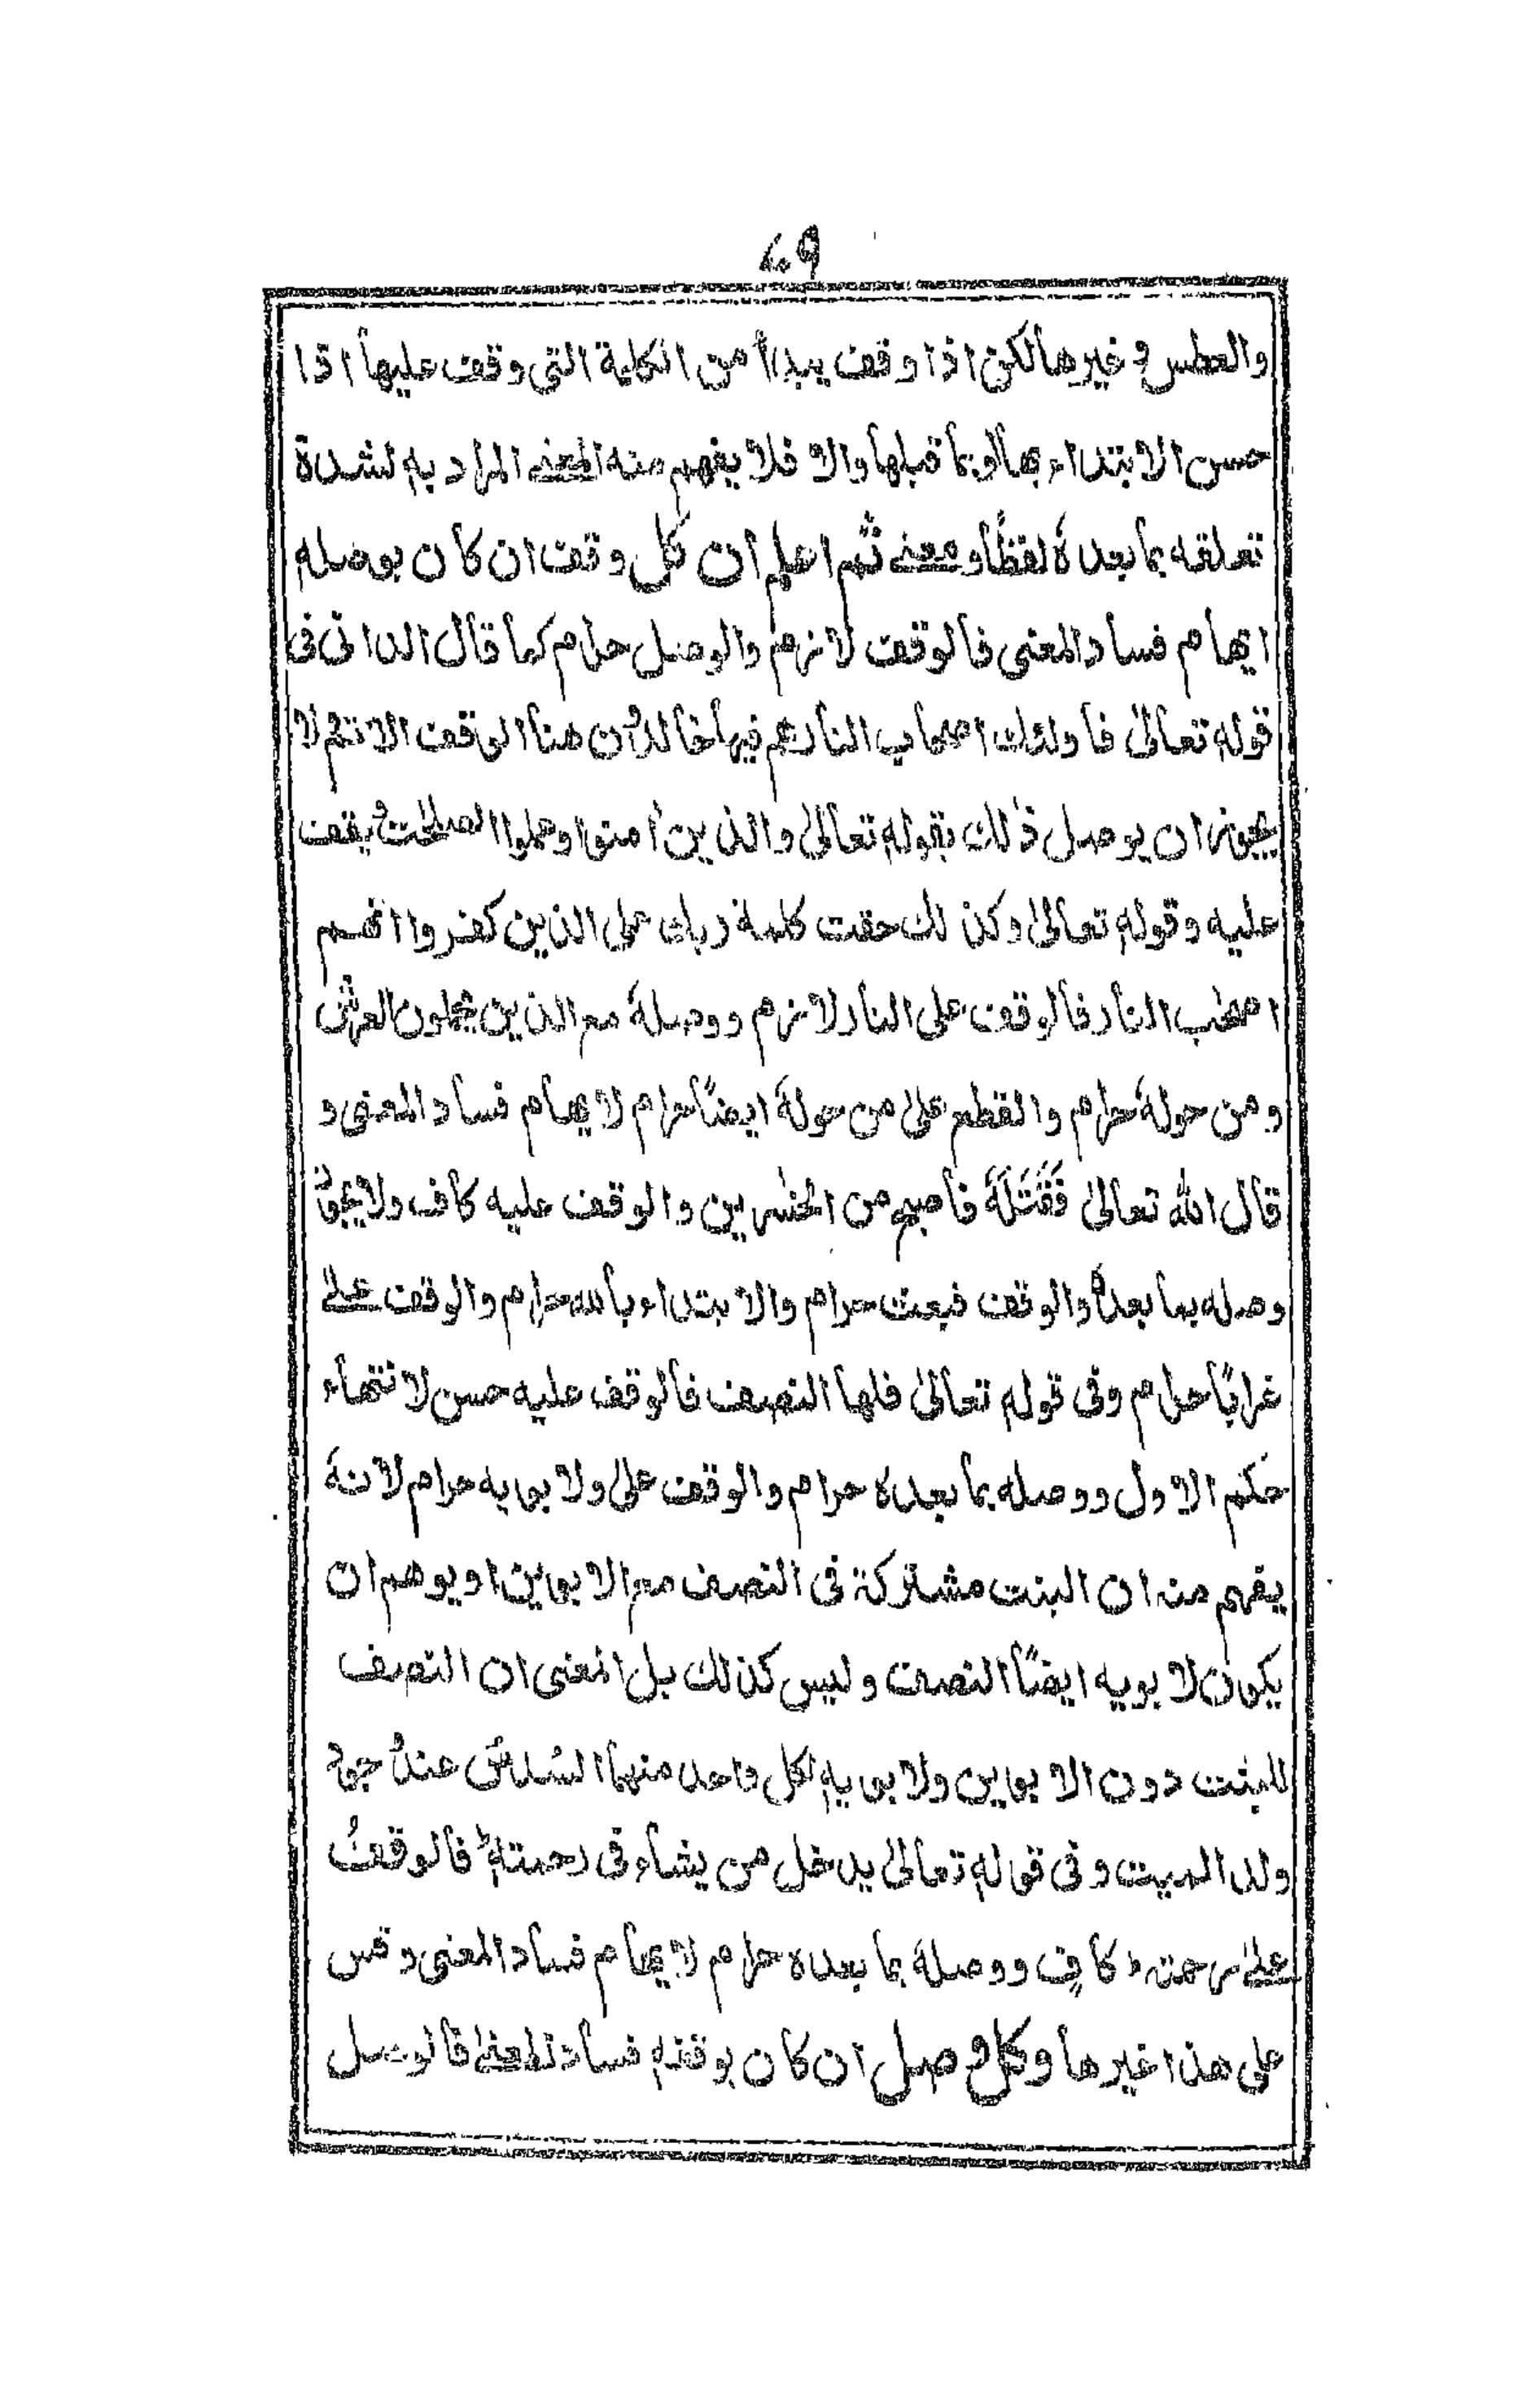 ۴۹
والعطس وغيرها لكن اذا وقف يبدأ من الكلمة التى وقف عليها اذا
حسن الابتداء بها او بما قبلها والا فلا يفهم منه المعنے المراد به لشدة
تعلقه بما بعدهٗ لفظًا ومعنے ثم اعلم ان كل وقف ان كان بوصله
ايهام فساد المعنى فالوقف لازم والوصل حرام كما قال الدانى فى
قوله تعالىٰ فاولئك اصحاب النار هم فيها خالدون هنا الوقف الاتم لا
يجوز ان يوصل ذٰلك بقوله تعالىٰ والذين اٰمنوا وعملوا الصلحٰت ويقف
عليه وقوله تعالىٰ وكذلك حقت كلمة ربك على الذين كفروا انهم
اصحٰب النار فالوقف على النار لازم ووصلهٗ مع الذين يحملون العرش
ومن حولهٗ حرام والقطع علىٰ من حولهٗ ايضًا حرام لايهام فساد المعنى و
قال الله تعالىٰ فَقَتَلَهٗ فاصبح من الخٰسرين والوقف عليه كاف ولا يجوز
وصله بما بعدهٗ والوقف فبعث حرام والابتداء بالله حرام والوقف علےٰ
غرابًا حرام وفى قوله تعالىٰ فلها النصف فالوقف عليه حسن لانتهاء
حكم الاول ووصله بما بعده حرام والوقف علىٰ ولابويه حرام لانهٗ
يفهم منه ان البنت مشتركة فى النصف مع الابوين او يوهم ان
يكون لابويه ايضًا النصف وليس كذلك بل المعنى ان النصف
للبنت دون الابوين ولابويه لكل واحد منهما السُّدُسُ عند
ولد الميت وفى قوله تعالىٰ يدخل من يشاء فى رحمته ط فالوقفُ
علىٰ رحمته ط كافٍ ووصلهٗ بما بعده حرام لايهام فساد المعنى وقس
على هذا غيرها وكل وصل ان كان بوقفه فساد المعنےٰ فالوصل